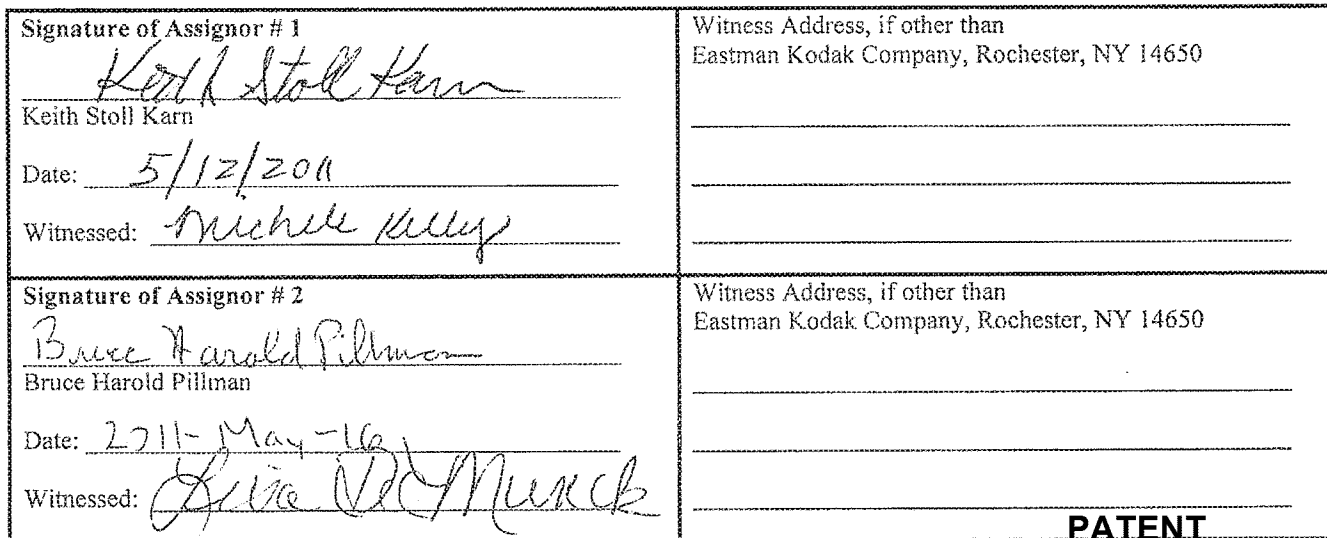 Signature of Assignor # 1
Keith Stoll Karn
Keith Stoll Karn
Date: 5/12/2011
Witnessed: Michele Kelly
Witness Address, if other than
Eastman Kodak Company, Rochester, NY 14650
Signature of Assignor # 2
Bruce Harold Pillman
Bruce Harold Pillman
Date: 2011-May-16
Witnessed: Lisa DeMunck
Witness Address, if other than
Eastman Kodak Company, Rochester, NY 14650
PATENT